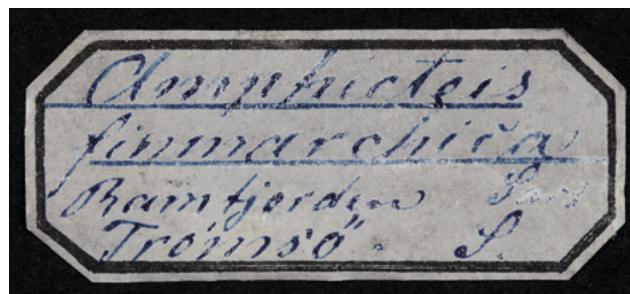 Amphicteis
finmarchica
Ramfjorden Sars
Tromsö. S.